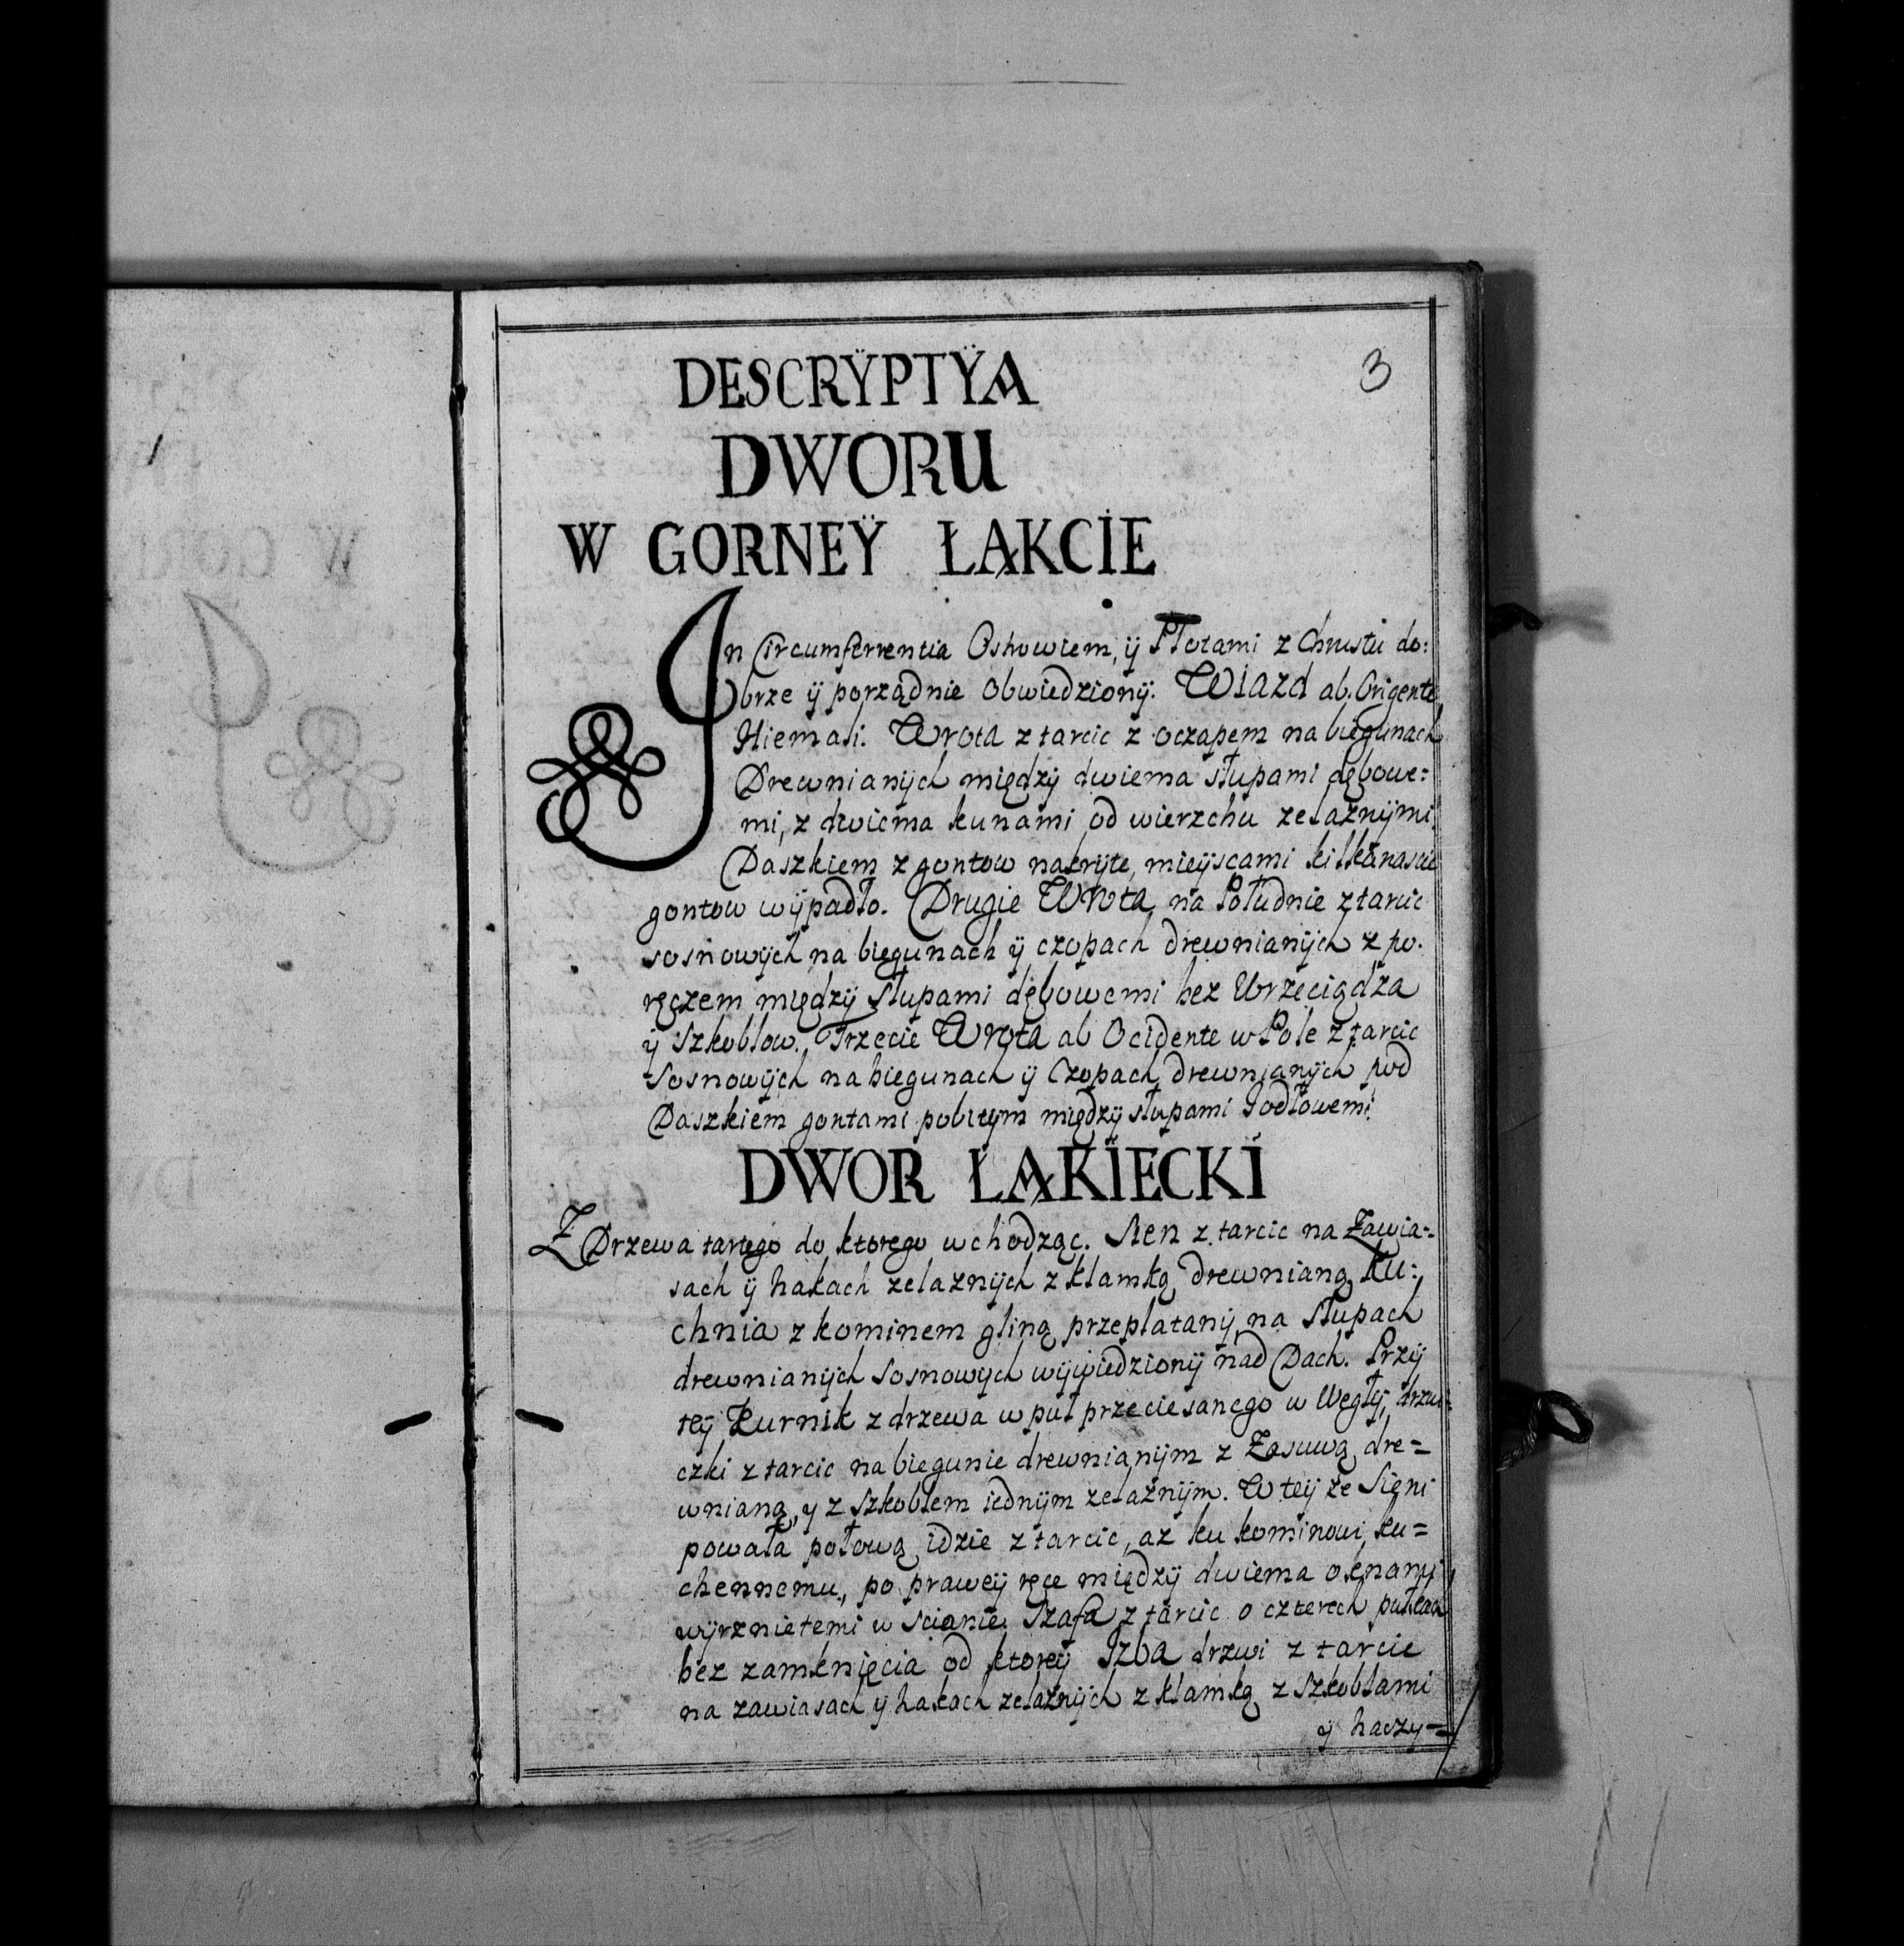 3
DESCRÿPTÿA
DWORU
W GORNEÿ ŁĄKCIE
In Circumferrentia Ostrowiem, ÿ Płotami z Chrustu do:
brze ÿ porządnie obwiedzionÿ. Wiazd ab. Origente
Hiemali. Wrota z tarcic z oczapem na biegunach
Drewnianÿch międzÿ dwiema słupami dębowe:
mi, z dwiema kunami od wierzchu zelaznÿmi
Daszkiem z gontow nakrÿte, mieÿscami kilkanascie
gontow wÿpadło. Drugie Wrota na Południe z tarcic
sosnowÿch na biegunach ÿ czopach drewnianÿch z po.
ręczem międzÿ słupami dębowemi bez Wrzeciądza
ÿ Szkoblow. Trzecie Wrota ab Ocidente w Pole z tarcic
Sosnowÿch na biegunach ÿ Czopach drewnianÿch pod
Daszkiem gontami pobitÿm międzÿ słupami Jodłowemi
DWOR ŁĄKIECKI
Z Drzewa tartego do ktorego wchodząc. Sien z tarcic na Zawia-
sach ÿ hakach zelaznÿch z klamką drewnianą Ku:
chnia z kominem gliną przeplatanÿ na słupach
drewnianÿch Sosnowÿch wÿwiedzionÿ nad Dach. Przÿ
teÿ Kurnik z drzewa w puł przeciesanego w Węgłÿ, drzwi-
czki z tarcic na biegunie drewnianÿm z Zasuwą dre=
wnianą, y z szkoblem iednÿm zelaznÿm. W teÿ ze Sieni
powała połową idzie z tarcic, az ku kominowi ku=
chennemu, po praweÿ ręce międzÿ dwiema oknami
wÿrznietemi w scianie Szafa z tarcic o czterech pułkach
bez zamknięcia od ktoreÿ Izba drzwi z tarcic
na zawiasach ÿ hakach zelaznÿch z klamką z szkoblami
ÿ haczy=